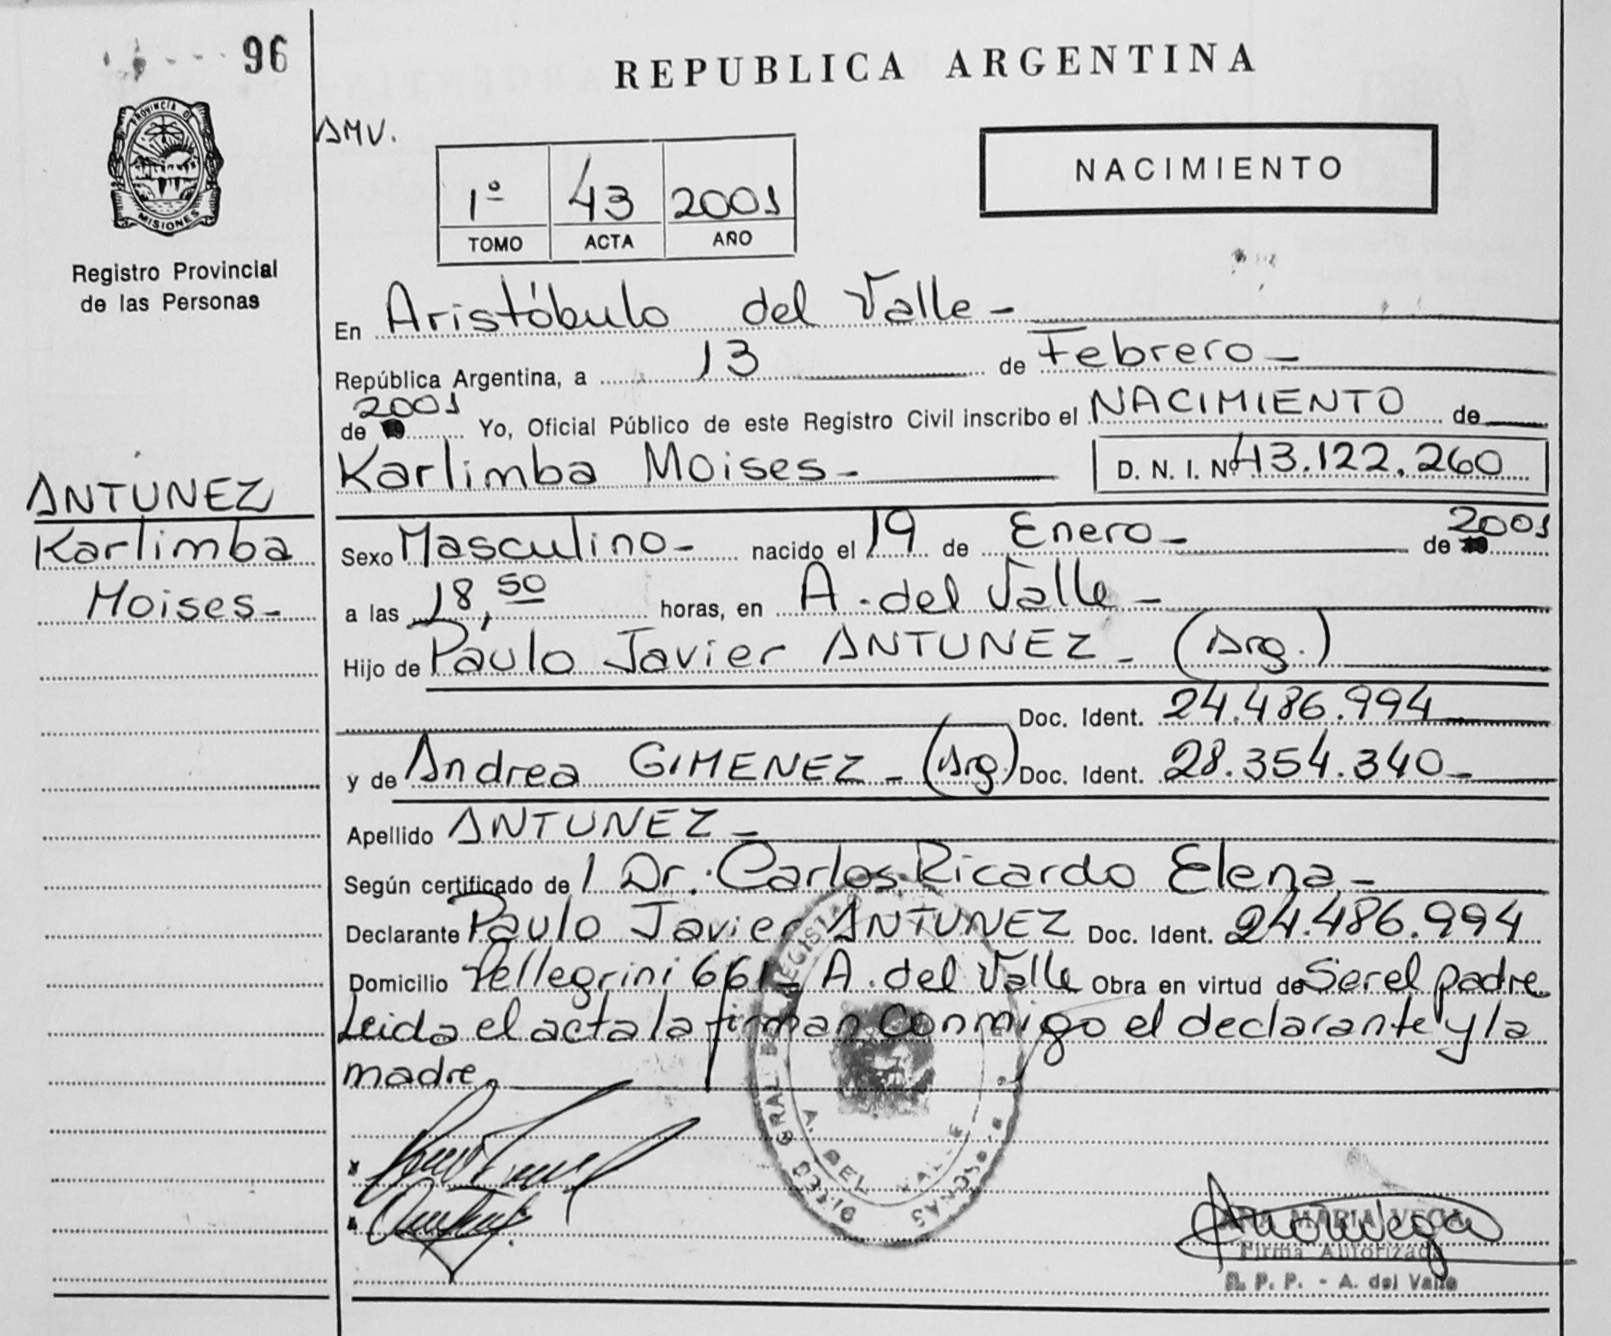 96
REPUBLICA ARGENTINA
PROVINCIA DE
MISIONES
Registro Provincial
de las Personas
AMV.
1º 43 2001
TOMO ACTA AÑO
NACIMIENTO
En Aristóbulo del Valle -
República Argentina, a 13 de Febrero -
de 2001 Yo, Oficial Público de este Registro Civil inscribo el NACIMIENTO de
Karlimba Moises - D. N. I. Nº 43.122.260
ANTUNEZ
Karlimba
Moises -
Sexo Masculino - nacido el 19 de Enero - de 2001
a las 18,50 horas, en A. del Valle -
Hijo de Paulo Javier ANTUNEZ - (Arg.)
Doc. Ident. 24.486.994
y de Andrea GIMENEZ - (Arg.) Doc. Ident. 28.354.340 -
Apellido ANTUNEZ -
Según certificado de l Dr. Carlos Ricardo Elena -
Declarante Paulo Javier ANTUNEZ Doc. Ident. 24.486.994
Domicilio Pellegrini 661 A. del Valle Obra en virtud de Ser el padre
Leida el acta la firman conmigo el declarante y la
madre
A. DEL VALLE
ANA MARIA VEGA
Firma Autorizada
R. P. P. - A. del Valle